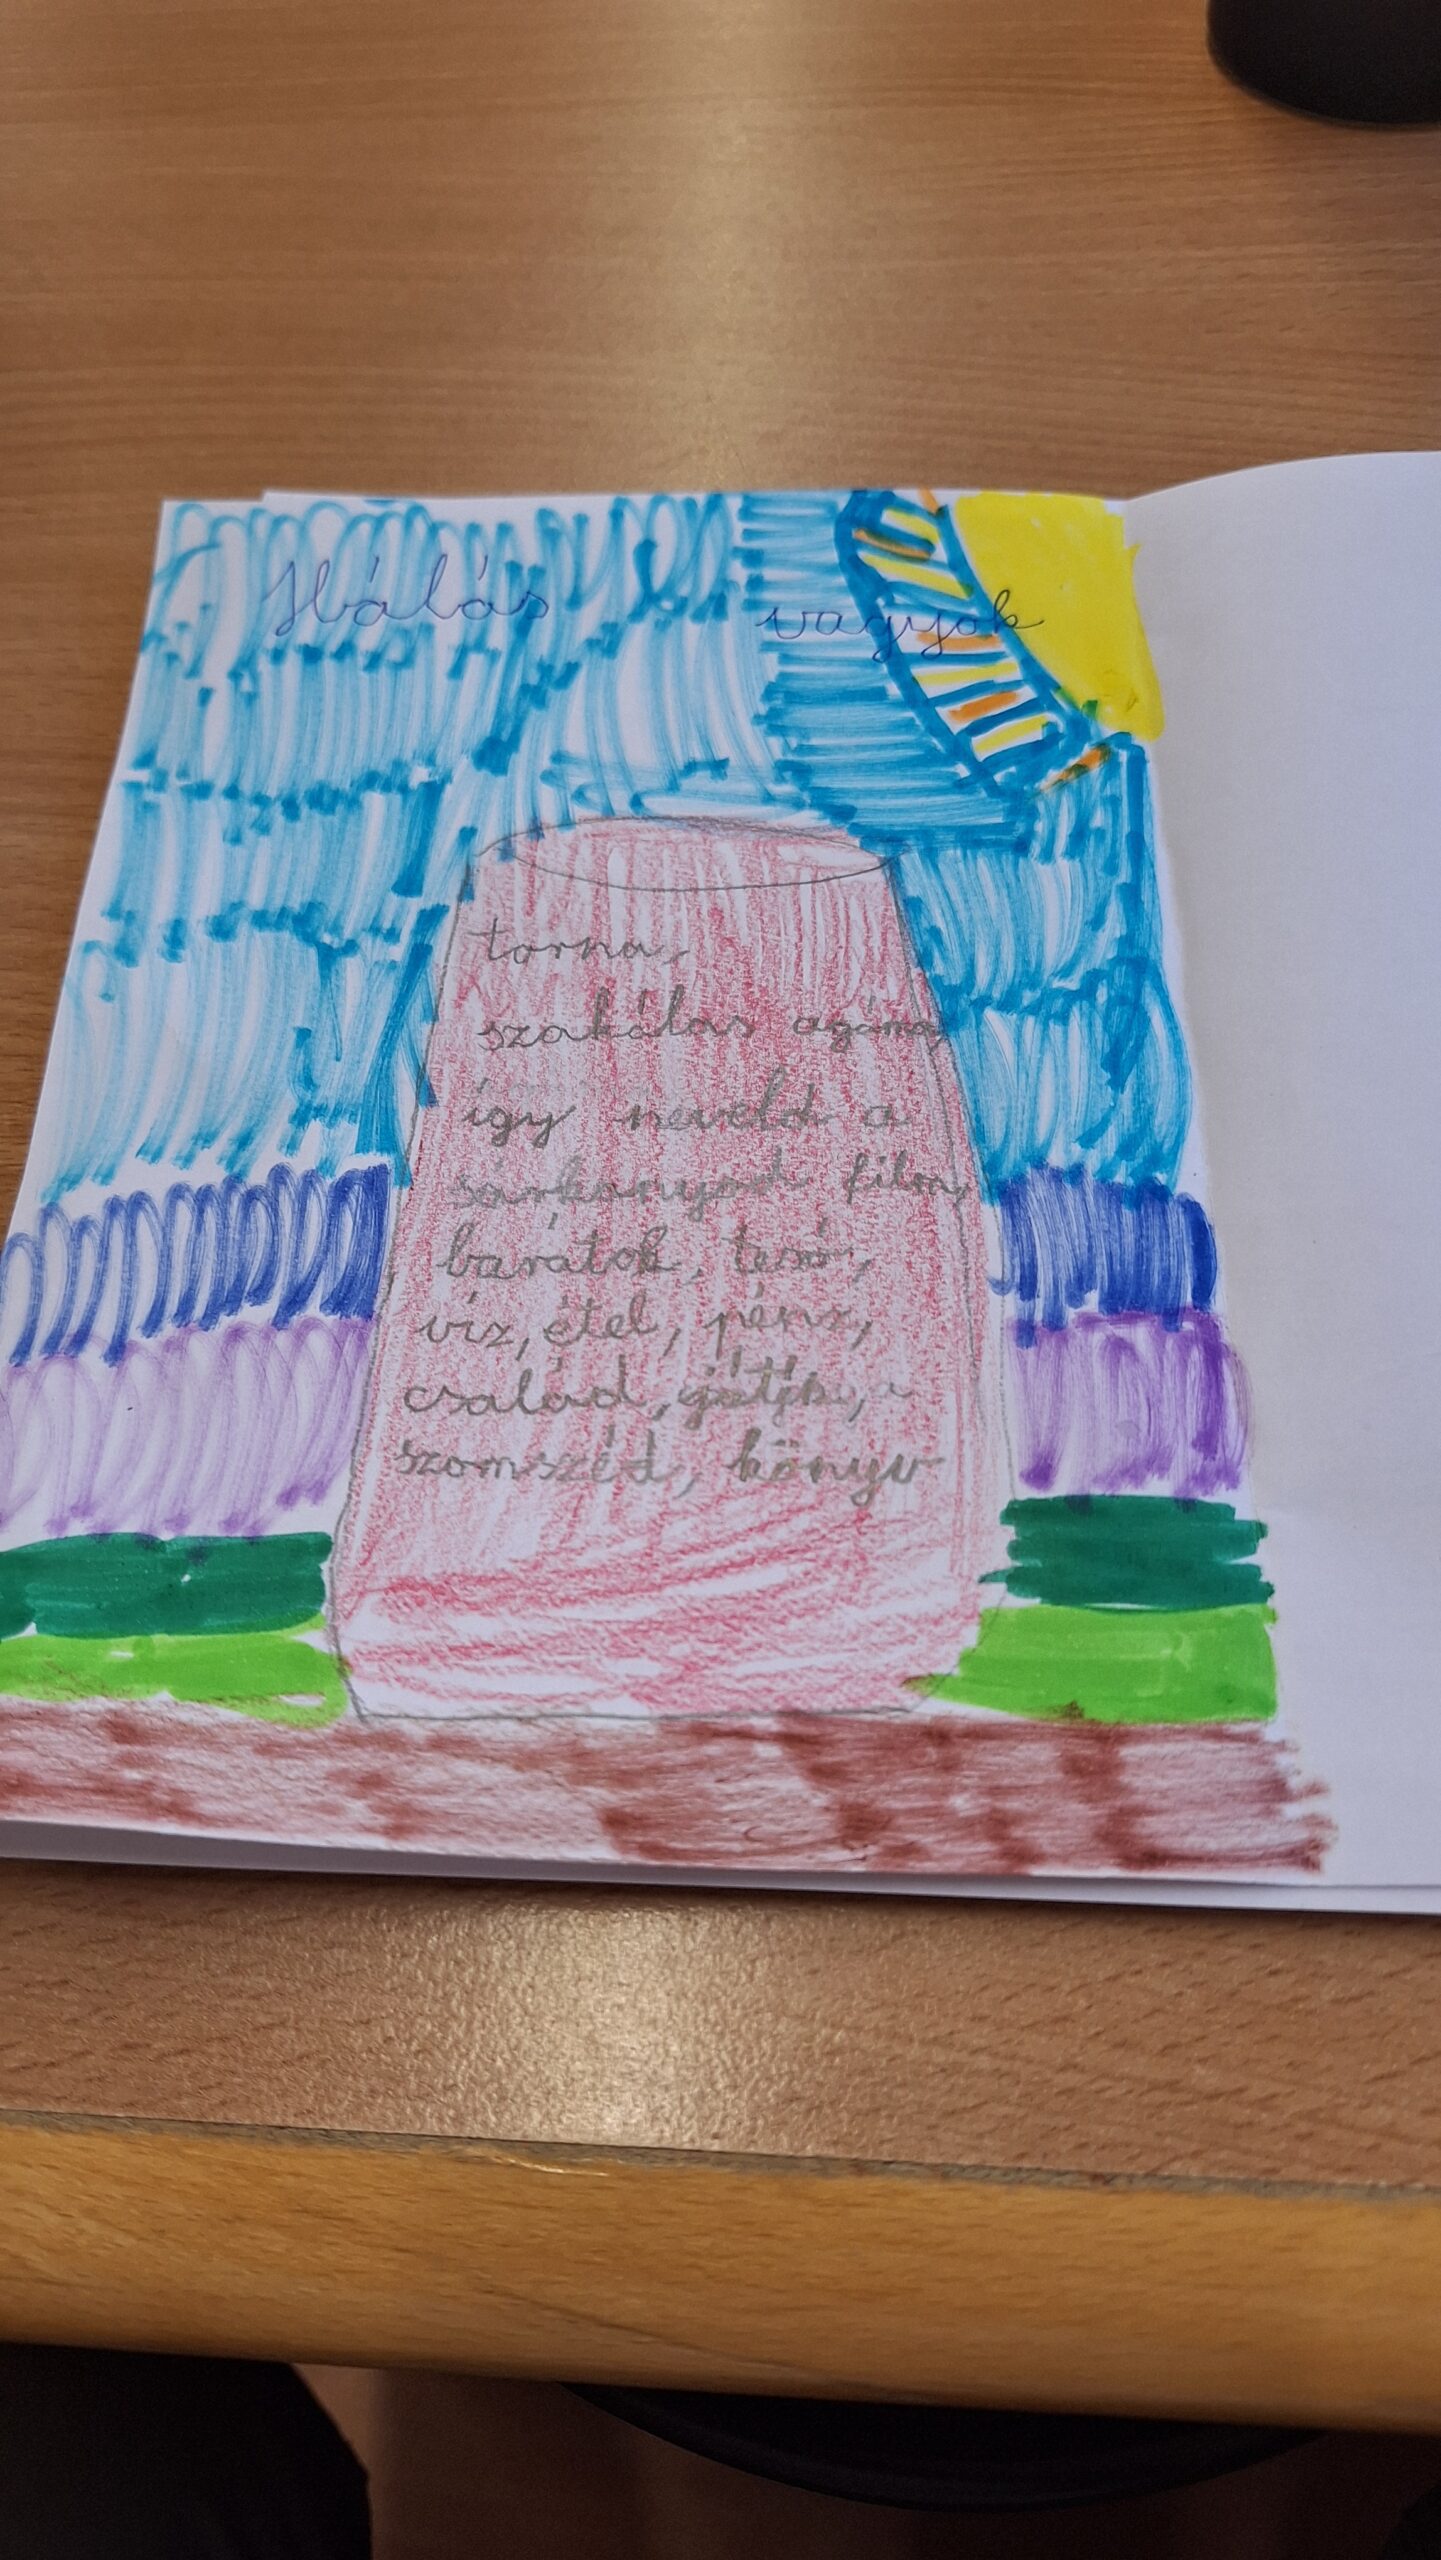 Hálás vagyok
torna,
szakálas agáma,
így neveld a
sárkanyod film,
barátok, tesó,
víz, étel, pénz,
család, játék, a
szomszéd, könyv